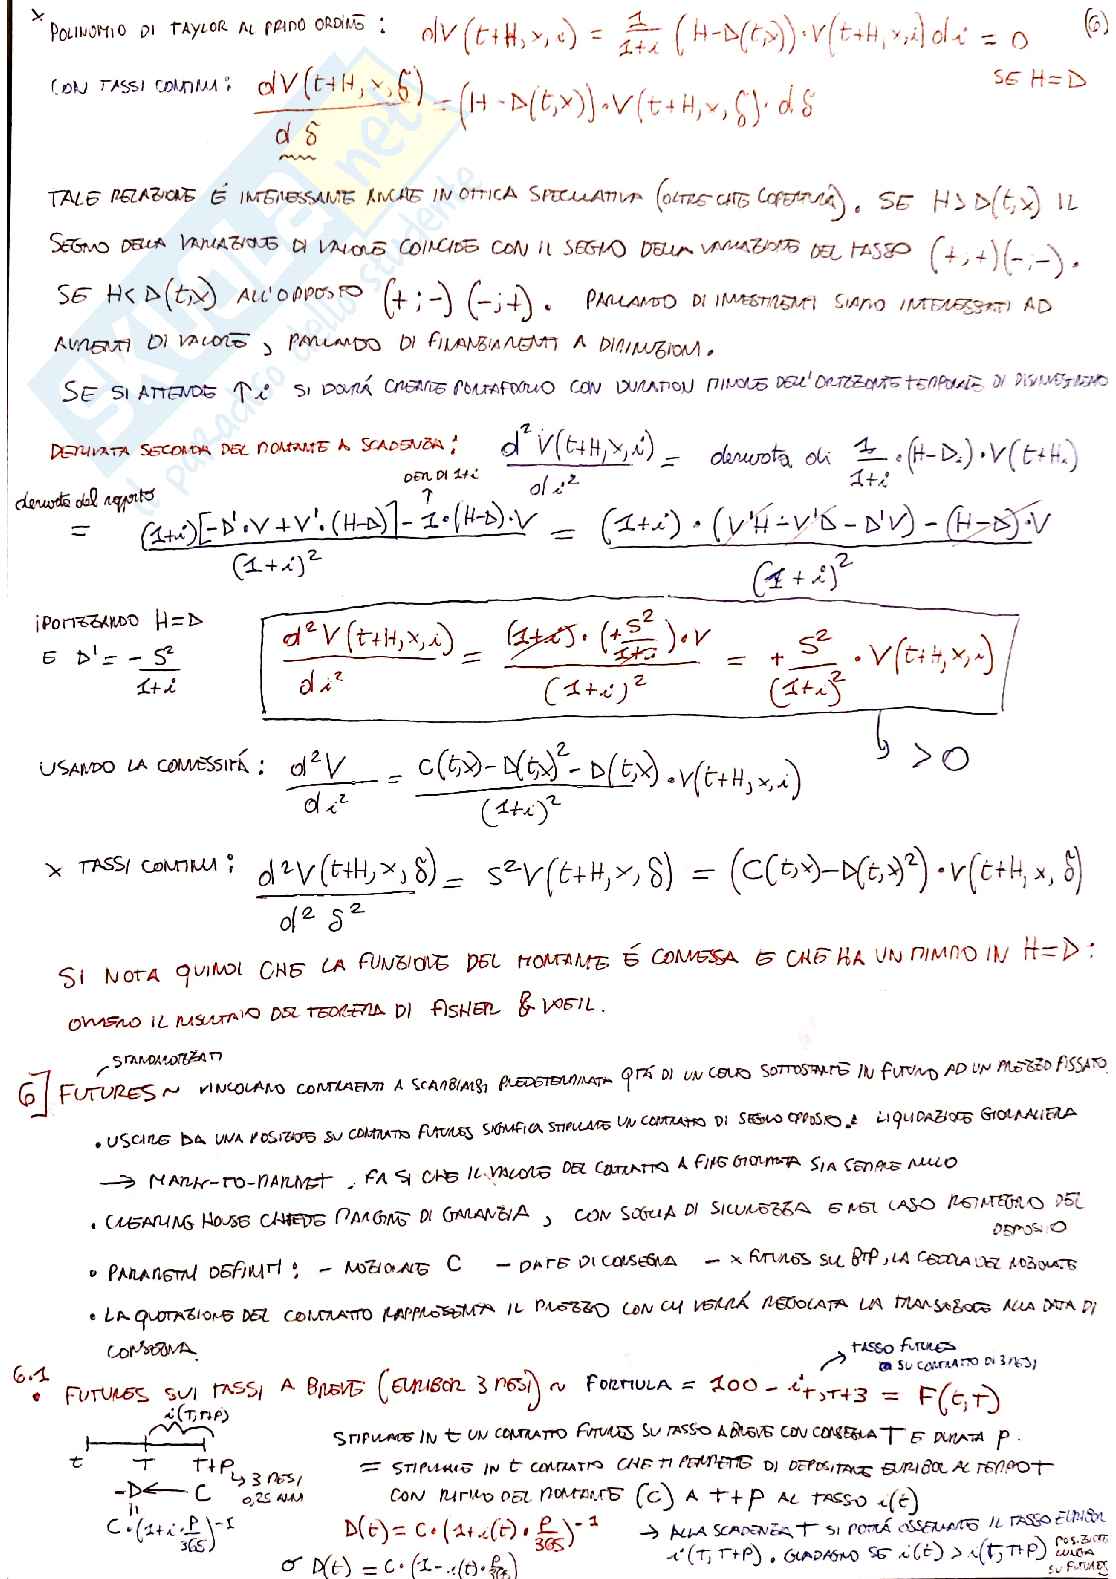 × POLINOMIO DI TAYLOR AL PRIMO ORDINE : dV(t+H,x,i) = 1/(1+i) (H-D(t,x))·V(t+H,x,i) di = 0 (6)
SE H=D
CON TASSI CONTINUI : dV(t+H,x,δ)/dδ = (H-D(t,x))·V(t+H,x,δ)·dδ
TALE RELAZIONE É INTERESSANTE ANCHE IN OTTICA SPECULATIVA (OLTRE CHE COPERTURA). SE H>D(t,x) IL
SEGNO DELLA VARIAZIONE DI VALORE COINCIDE CON IL SEGNO DELLA VARIAZIONE DEL TASSO (+,+)(-;-).
SE H<D(t,x) ALL'OPPOSTO (+;-) (-;+). PARLANDO DI INVESTIMENTI SIAMO INTERESSATI AD
AUMENTI DI VALORE, PARLANDO DI FINANZIAMENTI A DIMINUZIONI.
SE SI ATTENDE ↑i SI DOVRÁ CREARE PORTAFOGLIO CON DURATION MINORE DELL'ORIZZONTE TEMPORALE DI DISINVESTIMENTO
DERIVATA SECONDA DEL MONTANTE A SCADENZA : d²V(t+H,x,i)/di² = derivata di 1/(1+i)·(H-D.)·V(t+H.)
DER DI 1+i
derivata del rapporto
= ((1+i)[-D'·V+V'·(H-D)]-1·(H-D)·V)/(1+i)² = ((1+i)·(V'H-V'D-D'V)-(H-D)·V)/(1+i)²
IPOTIZZANDO H=D
E D' = -S²/(1+i)
d²V(t+H,x,i)/di² = ((1+i)·(+S²/(1+i))·V)/(1+i)² = +S²/(1+i)²·V(t+H,x,i)
>0
USANDO LA CONVESSITÁ : d²V/di² = (C(t,x)-D(t,x)²-D(t,x))/(1+i)²·V(t+H,x,i)
× TASSI CONTINUI : d²V(t+H,x,δ)/d²δ² = S²V(t+H,x,δ) = (C(t,x)-D(t,x)²)·V(t+H,x,δ)
SI NOTA QUINDI CHE LA FUNZIONE DEL MONTANTE É CONVESSA E CHE HA UN MINIMO IN H=D :
OVVERO IL RISULTATO DEL TEOREMA DI FISHER & WEIL.
STANDARDIZZATI
6] FUTURES ~ VINCOLANO CONTRAENTI A SCAMBIARSI PREDETERMINATA QTÁ DI UN CERTO SOTTOSTANTE IN FUTURO AD UN PREZZO FISSATO.
• USCIRE DA UNA POSIZIONE SU CONTRATTO FUTURES SIGNIFICA STIPULARE UN CONTRATTO DI SEGNO OPPOSTO. LIQUIDAZIONE GIORNALIERA
→ MARK-TO-MARKET. FA SI CHE IL VALORE DEL CONTRATTO A FINE GIORNATA SIA SEMPRE NULLO
• CLEARING HOUSE CHIEDE MARGINE DI GARANZIA, CON SOGLIA DI SICUREZZA E NEL CASO REINTEGRO DEL
DEPOSITO
• PARAMETRI DEFINITI : - NOZIONALE C - DATE DI CONSEGNA - × FUTURES SUL BTP, LA CEDOLA DEL NOZIONALE
• LA QUOTAZIONE DEL CONTRATTO RAPPRESENTA IL PREZZO CON CUI VERRÁ REGOLATA LA TRANSAZIONE ALLA DATA DI
CONSEGNA.
TASSO FUTURES
SU CONTRATTO DI 3 MESI
6.1
• FUTURES SUI TASSI A BREVE (EURIBOR 3 MESI) ~ FORMULA = 100 - i T,T+3 = F(t,T)
i(T,T+P)
t T T+P
3 MESI
0,25 ANNI
-D ← C
C·(1+i·P/365)⁻¹
STIPULARE IN t UN CONTRATTO FUTURES SU TASSO A BREVE CON CONSEGNA T E DURATA P.
= STIPULARE IN t CONTRATTO CHE TI PERMETTE DI DEPOSITARE EURIBOR AL TEMPO T
CON RITIRO DEL MONTANTE (C) A T+P AL TASSO i(t)
D(t) = C·(1+i(t)·P/365)⁻¹
→ ALLA SCADENZA T SI POTRÁ OSSERVARE IL TASSO EURIBOR
i(T,T+P). GUADAGNO SE i(t) > i(T,T+P) POSIZIONE LUNGA SU FUTURES
O D(t) = C·(1-i(t)·P/365)
SKUOLA.net
il paradiso dello studente